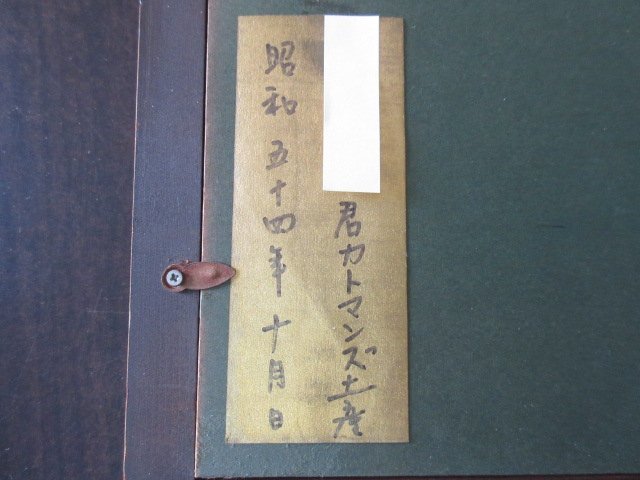 君カトマンズ土産
昭和五十四年十月日